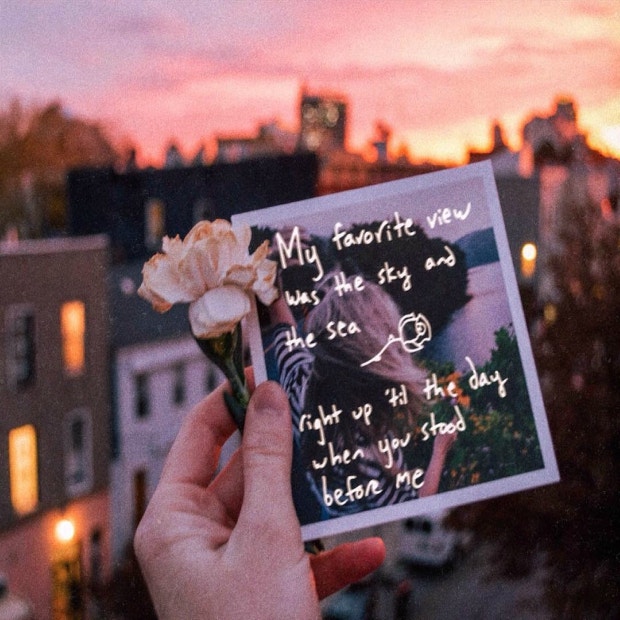 My favorite view
was the sky and
the sea
right up 'til the day
when you stood
before me